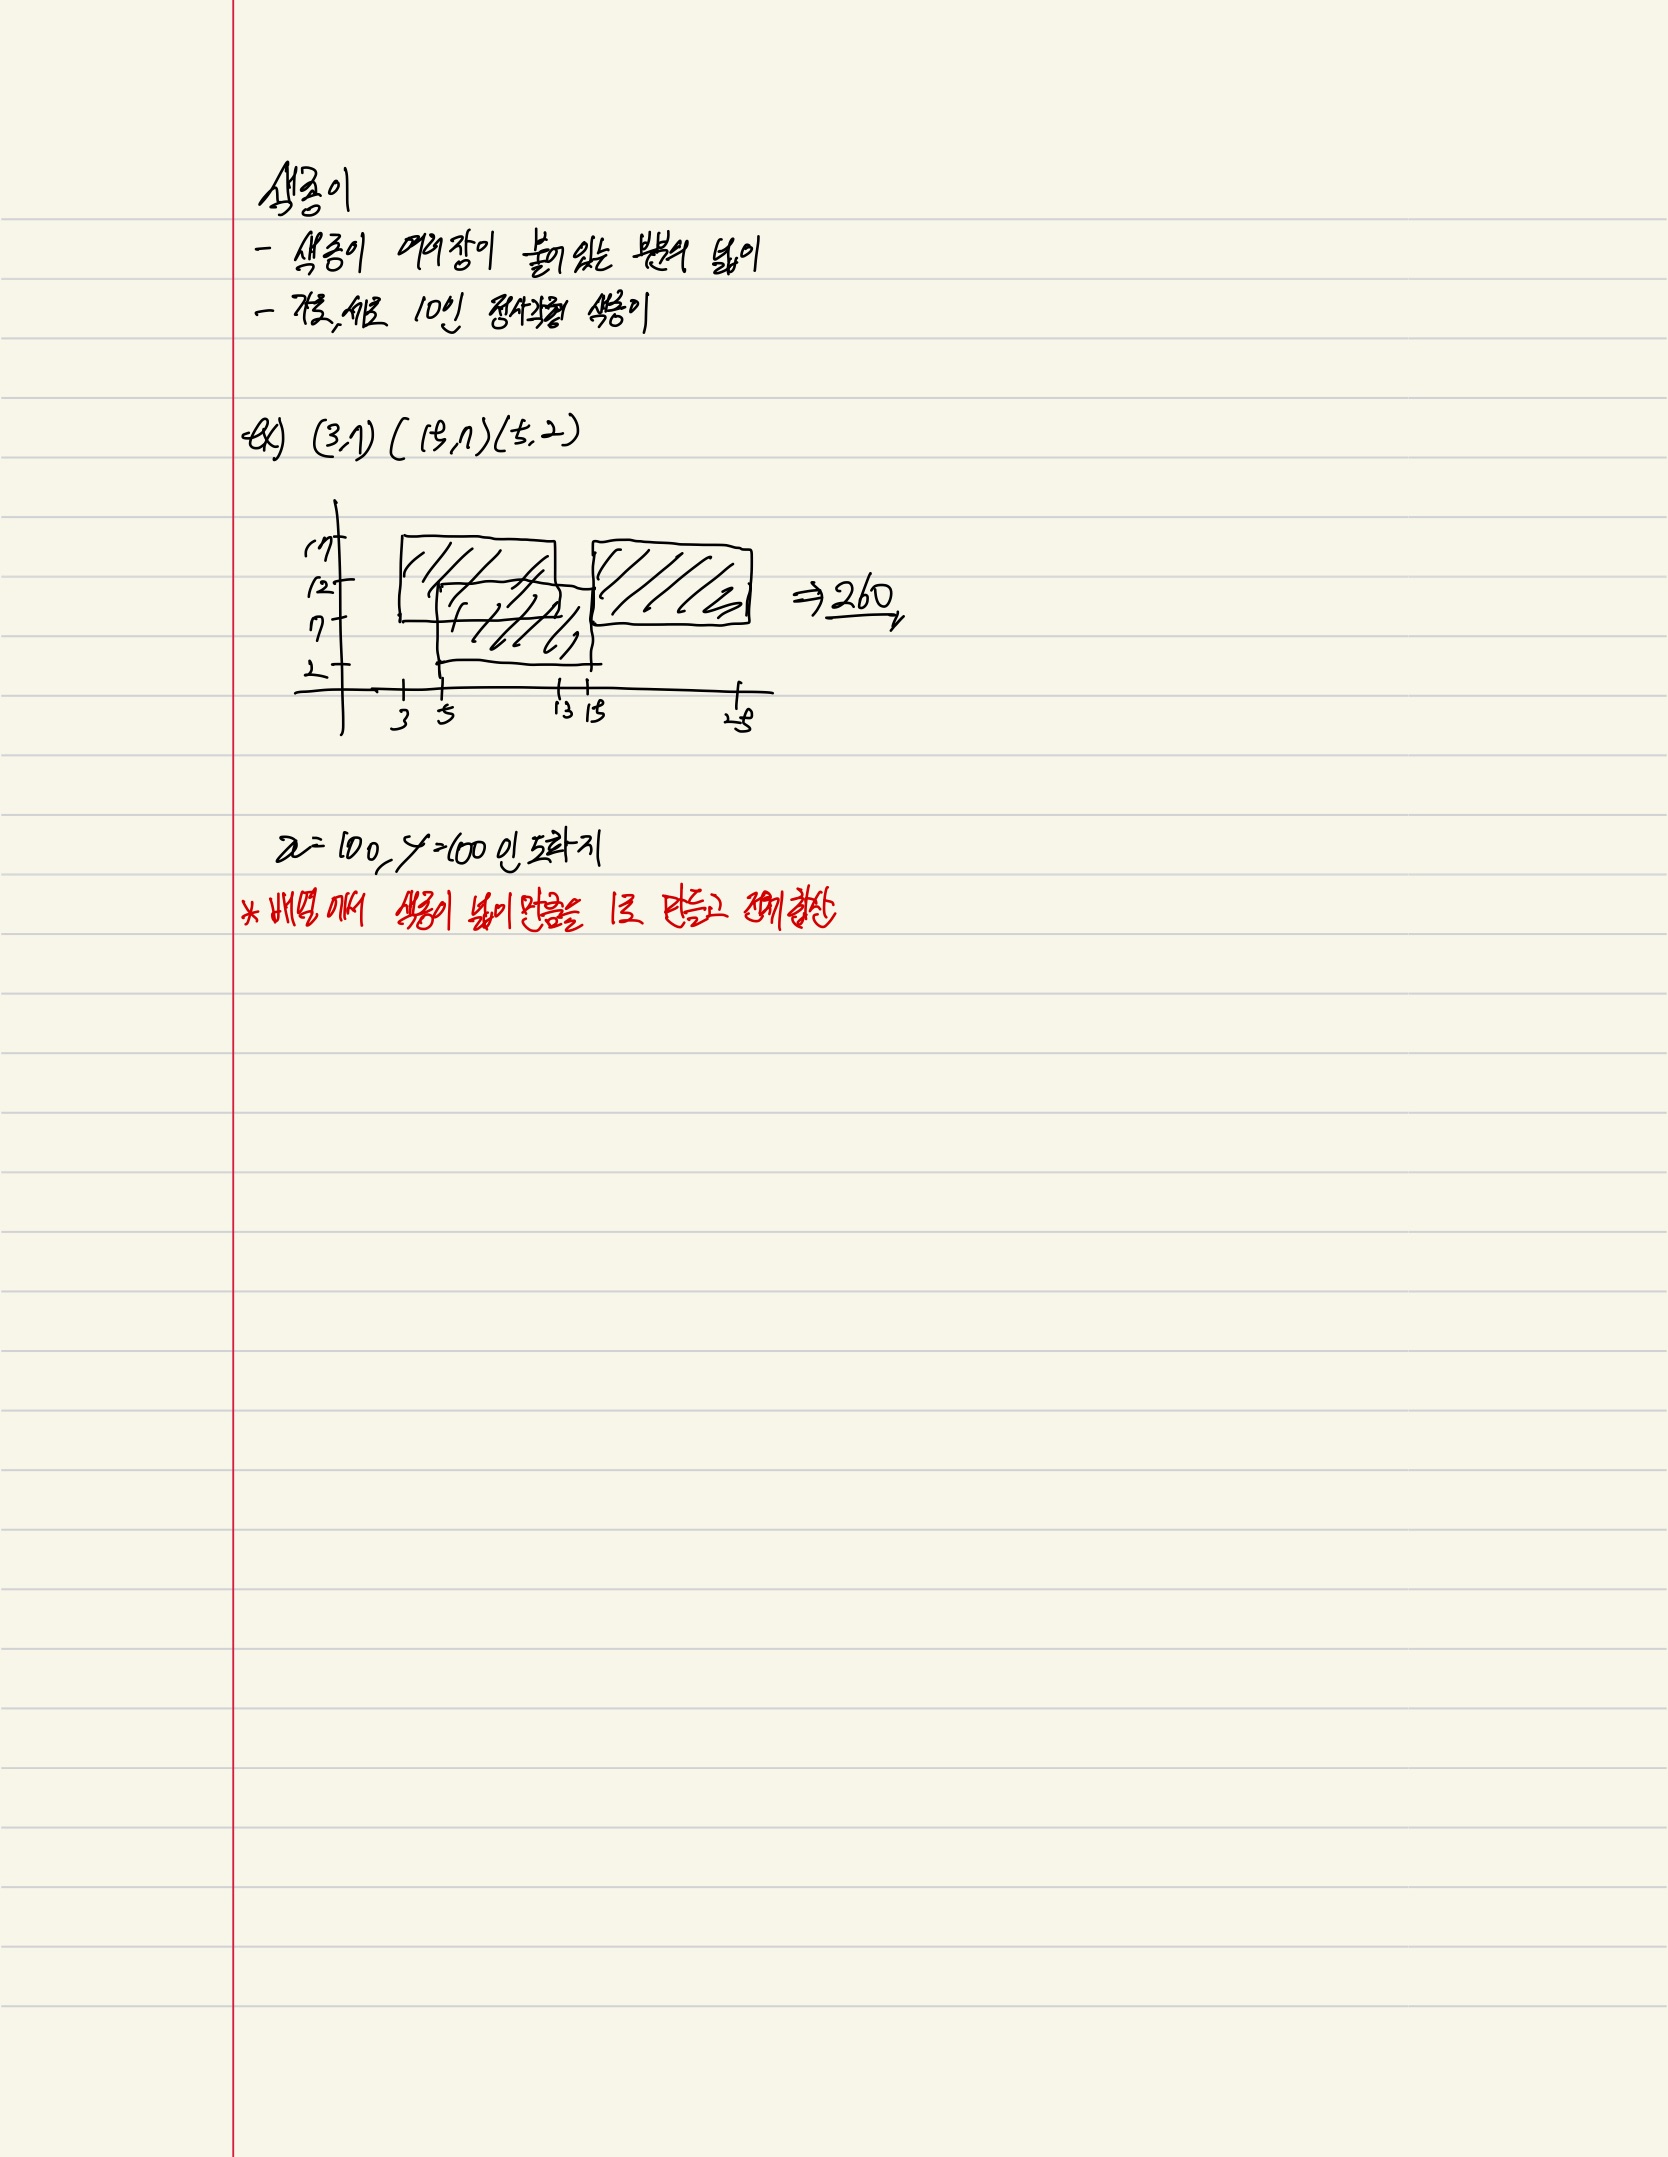 색종이
- 색종이 여러장이 붙어 있는 부분의 넓이
- 가로, 세로 10인 정사각형 색종이
ex) (3,7) (15,7) (5,2)
17
12
7
2
3 5 13 15 25
⇒ 260
x=100, y=100인 도화지
* 배열에서 색종이 넓이만큼을 1로 만들고 전체합산